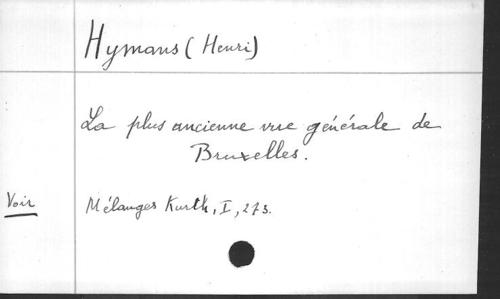 Hymans (Henri)
La plus ancienne vue générale de
Bruxelles.
Voir
Mélanges Kurth, I, 273.